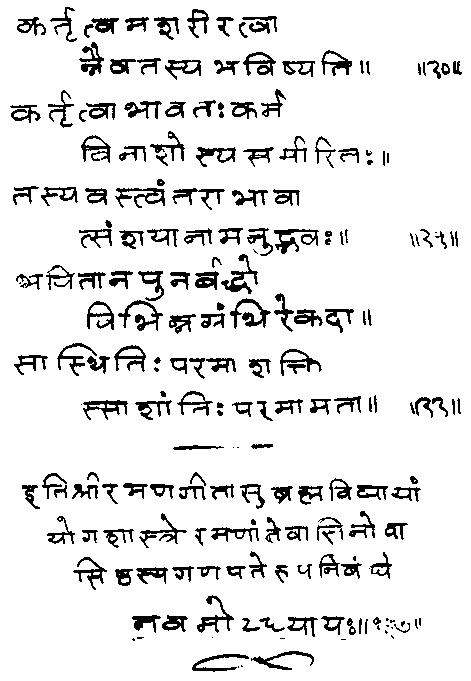 कर्तृत्वमशरीरत्वा
न्नैवतस्यभविष्यति॥ ॥२०॥
कर्तृत्वाभावतःकर्म
विनाशोस्यसमीरितः॥
तस्यवस्त्वंतराभावा
त्संशयानामनुद्भवः॥ ॥२१॥
भवितानपुनर्बद्धो
विभिन्नग्रंथिरेकदा॥
सास्थितिःपरमाशक्ति
स्साशांतिःपरमामता॥ ॥२२॥
इतिश्रीरमणगीतासुब्रह्मविद्यायां
योगशास्त्रेरमणांतेवासिनोवा
सिष्ठस्यगणपतेरुपनिबंधे
नवमोऽध्यायः॥